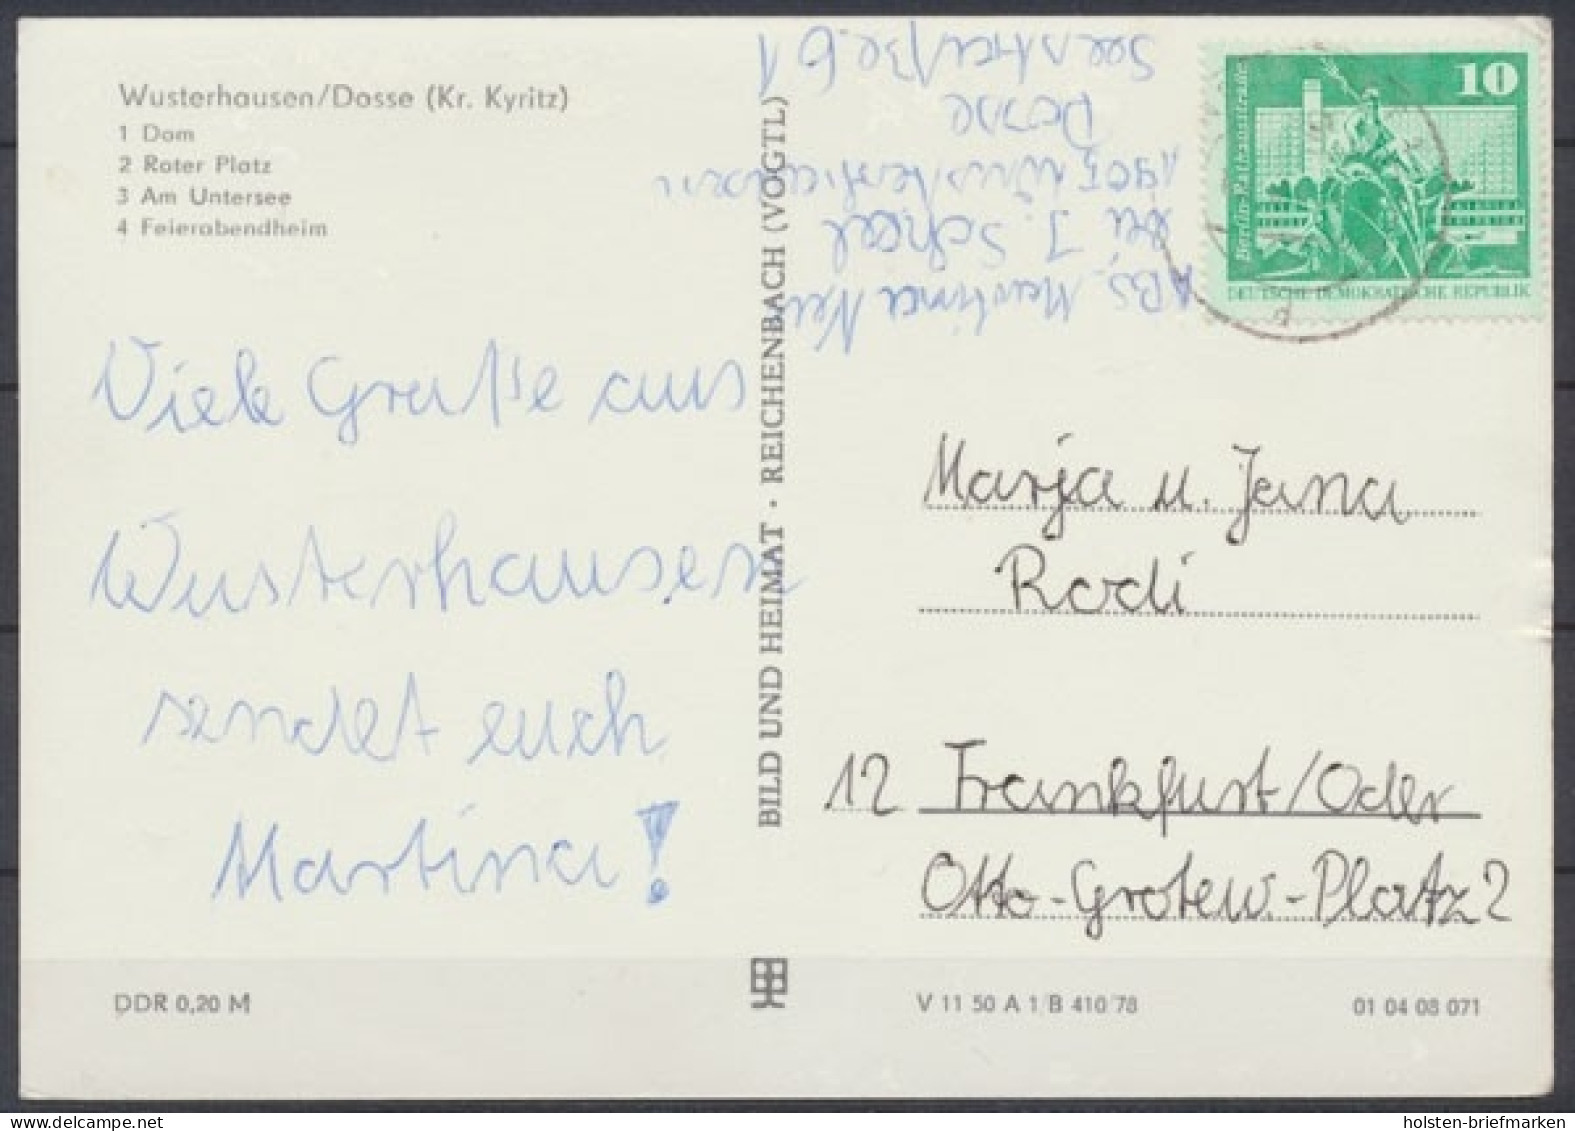 Wusterhausen/Dosse (Kr. Kyritz)
1 Dom
2 Roter Platz
3 Am Untersee
4 Feierabendheim
Viele Grüße aus
Wusterhausen
sendet euch
Martina!
DDR 0,20 M
BILD UND HEIMAT · REICHENBACH (VOGTL)
ABS. Martina Neu
bei J. Schaal
1905 Wusterhausen
Dosse
Seestraße 61
10
Berlin-Rathausstraße
DEUTSCHE DEMOKRATISCHE REPUBLIK
Marja u. Jana
Rodi
12 Frankfurt/Oder
Otto-Grotew.-Platz 2
V 11 50 A 1/B 410/78
01 04 08 071
holsten-briefmarken